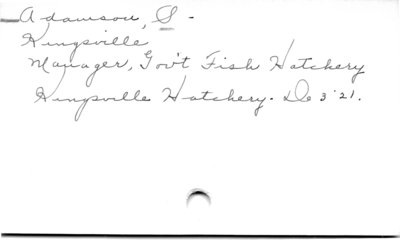 Adamson, S -
Kingsville
Manager, Gov't Fish Hatchery
Kingsville Hatchery. De 3'21.